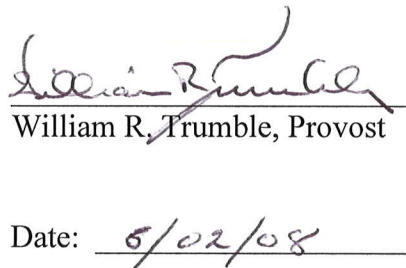 William R. Trumble
William R. Trumble, Provost
Date: 5/02/08